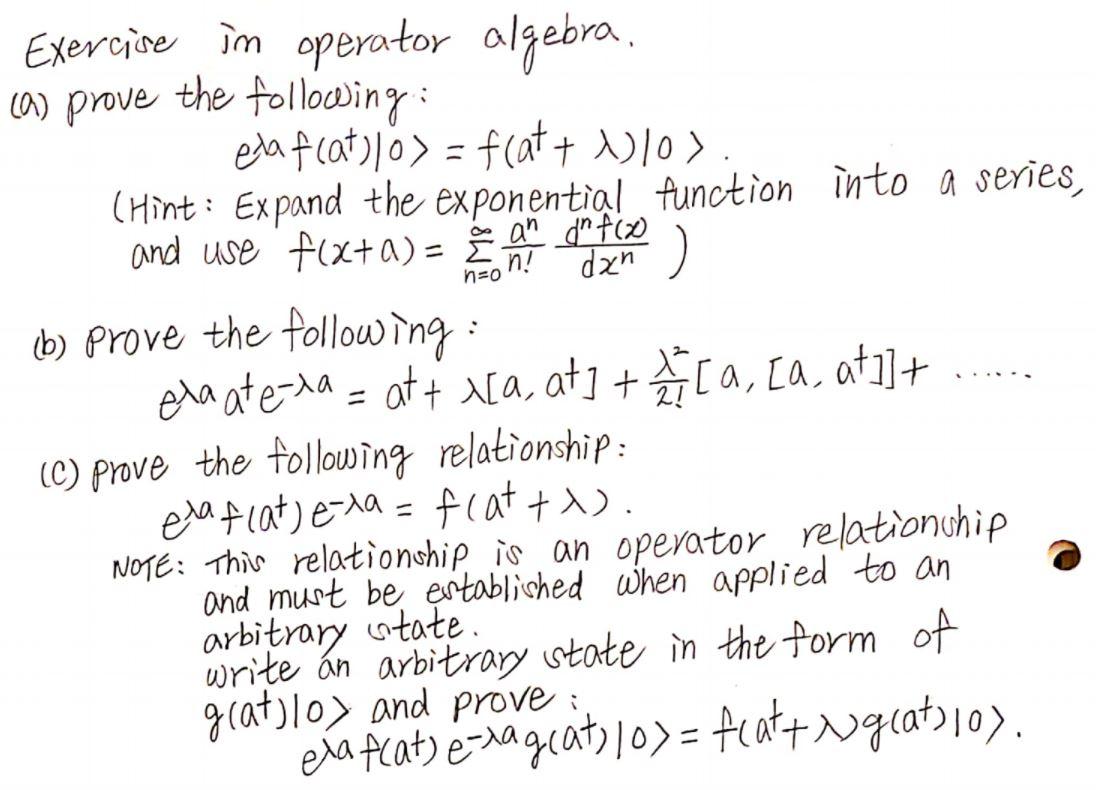 Exercise in operator algebra.
(a) prove the following:
e^{λa} f(a†)|0> = f(a† + λ)|0>.
(Hint: Expand the exponential function into a series,
and use f(x+a) = ∑_{n=0}^{∞} \frac{a^n}{n!} \frac{d^n f(x)}{dx^n} )
(b) prove the following:
e^{λa} a† e^{-λa} = a† + λ[a, a†] + \frac{λ^2}{2!} [a, [a, a†]] + ......
(C) prove the following relationship:
e^{λa} f(a†) e^{-λa} = f(a† + λ).
NOTE: This relationship is an operator relationship
and must be established when applied to an
arbitrary state.
write an arbitrary state in the form of
g(a†)|0> and prove:
e^{λa} f(a†) e^{-λa} g(a†)|0> = f(a† + λ)g(a†)|0>.